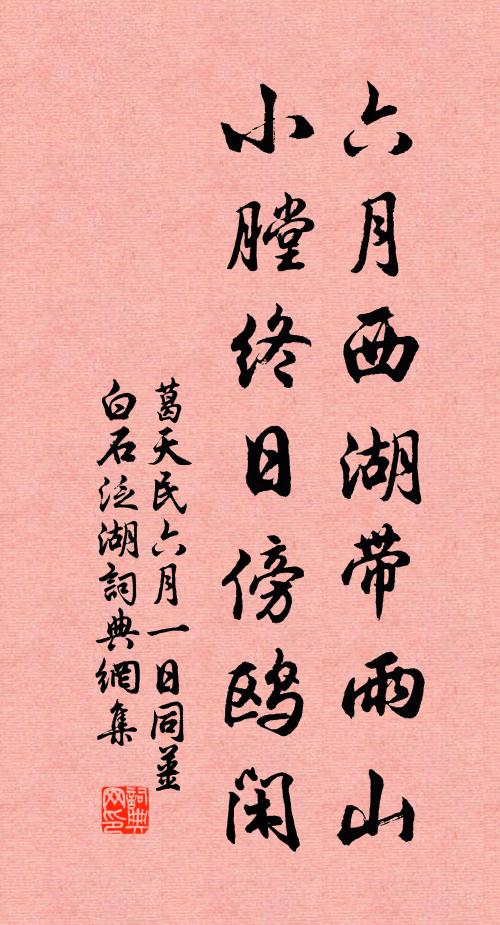 六月西湖帶雨山
小膛終日傍鷗閑
葛天民六月一日同薑
白石泛湖詞典網集
詞典
网印